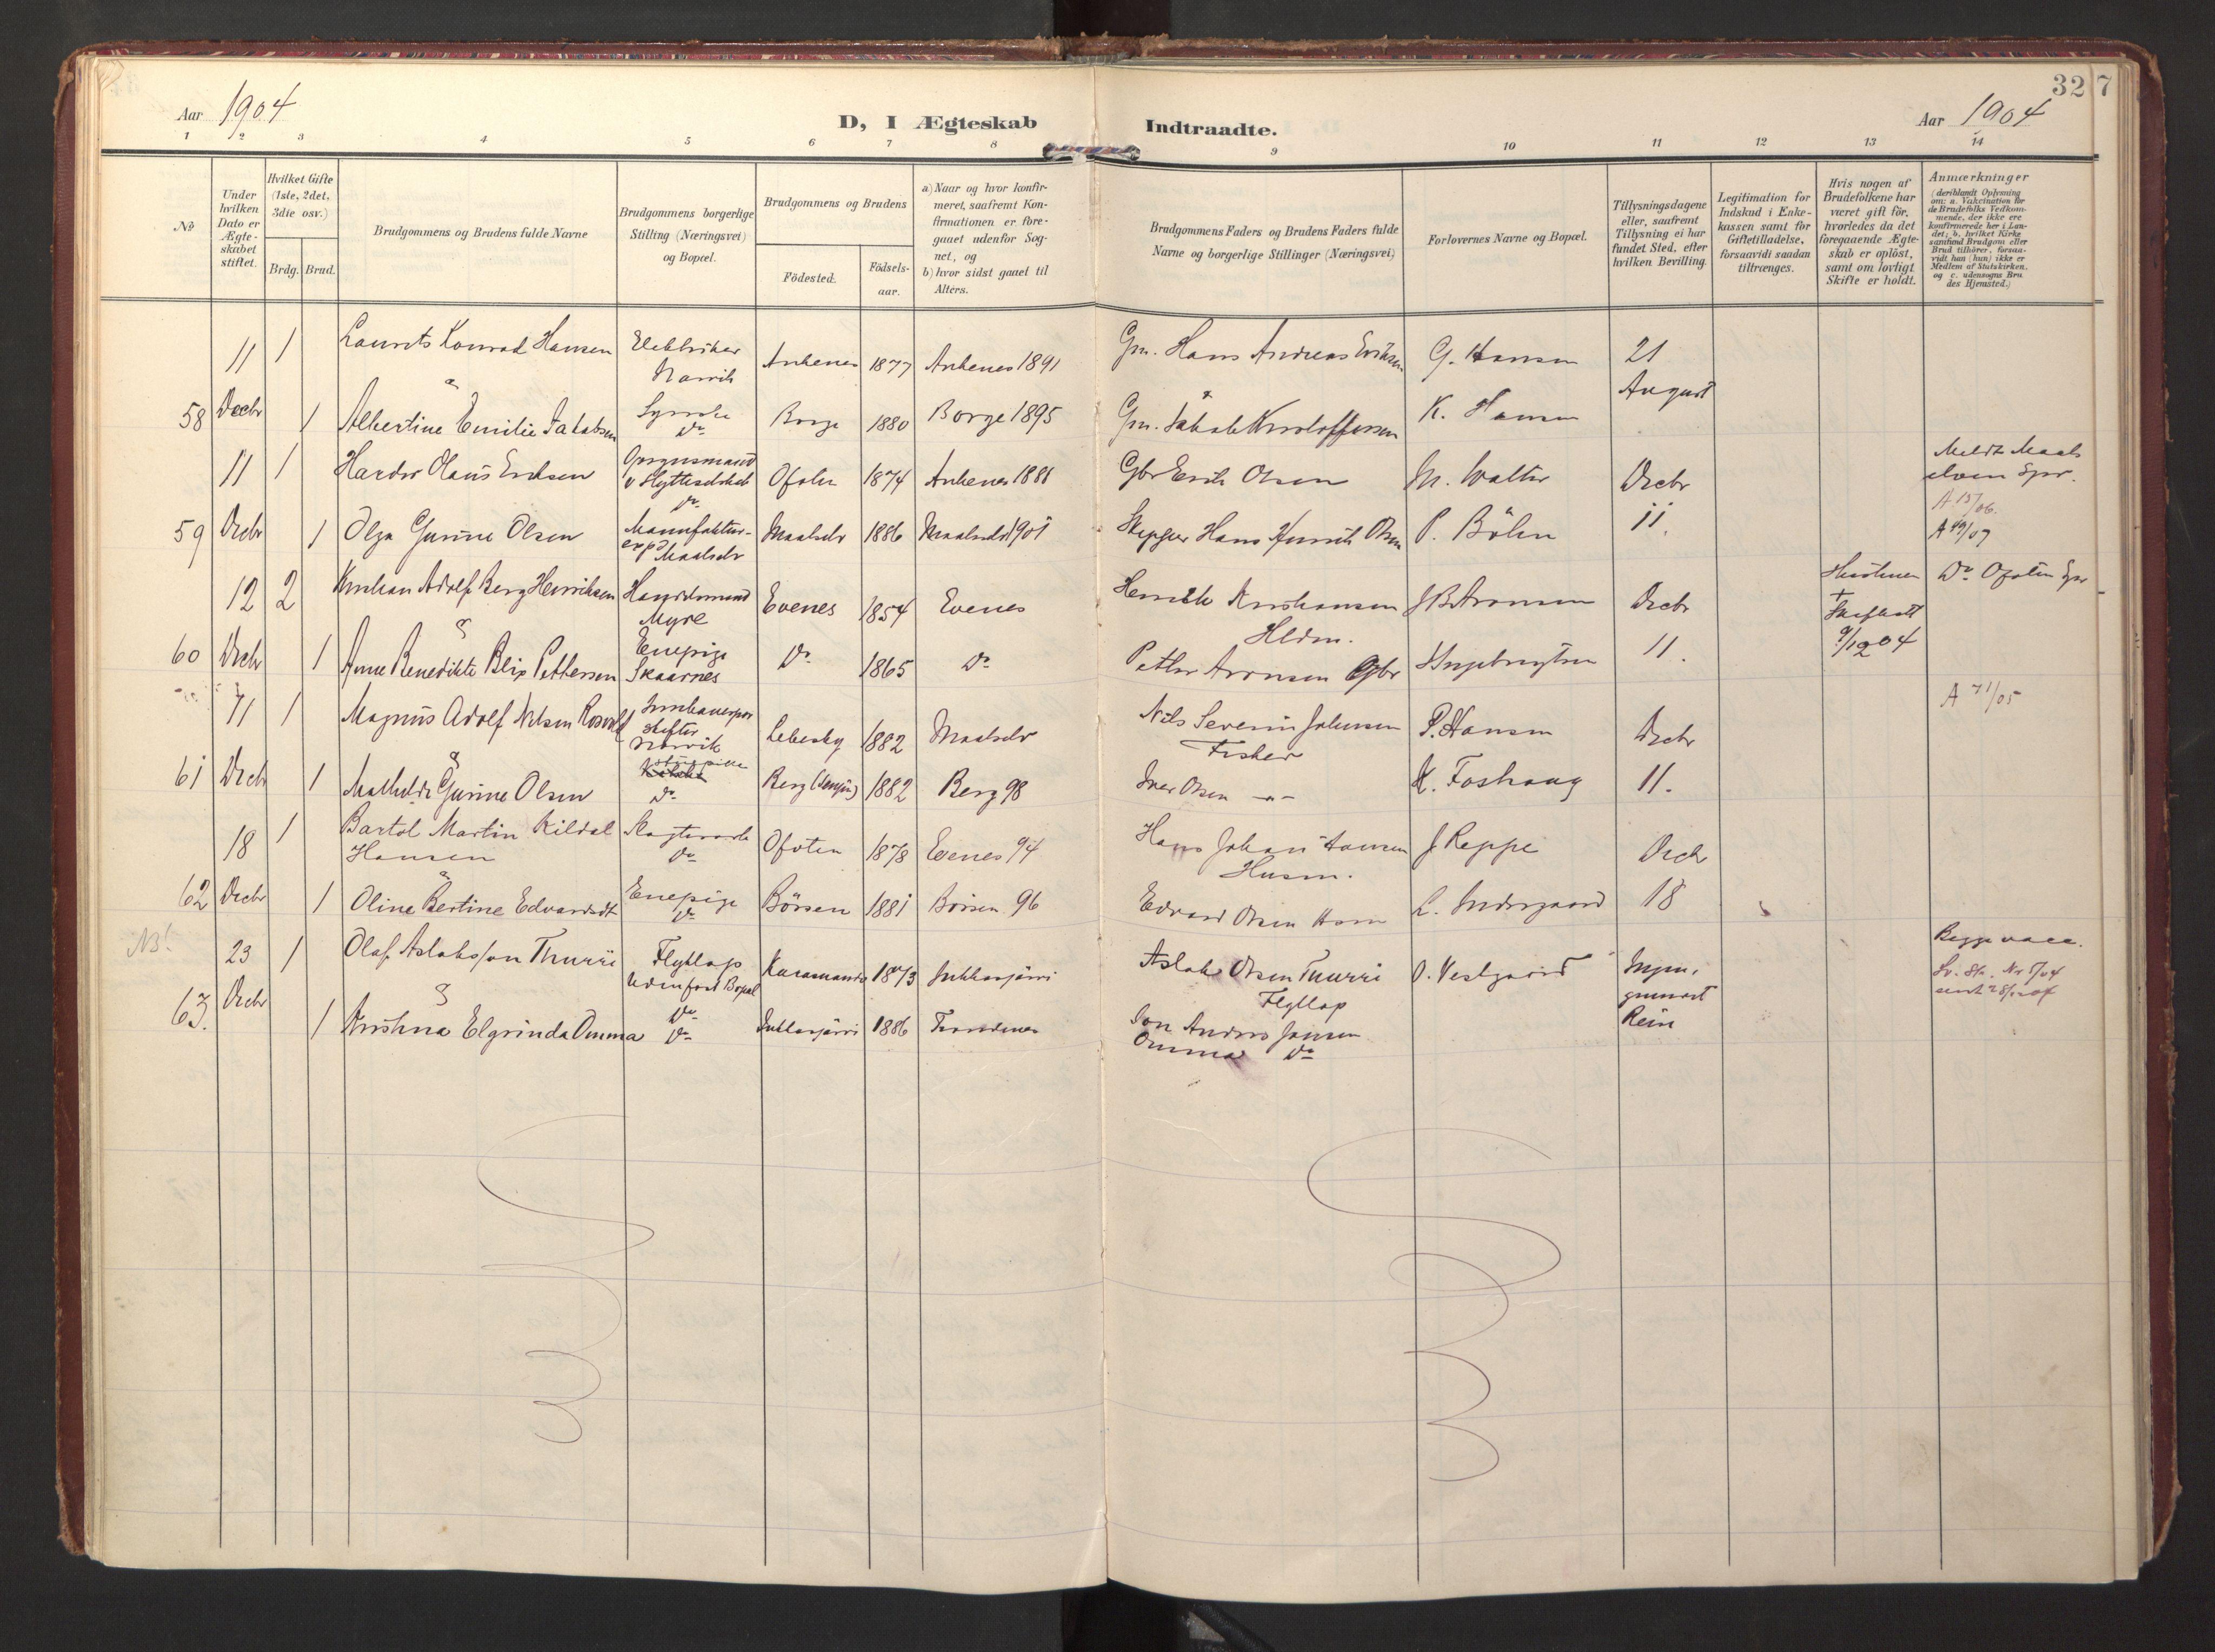 32 7
Aar 1904
D, I Ægteskab Indtraadte.
Aar 1904
1 2 3 4 5 6 7 8 9 10 11 12 13 14
No
Under hvilken Dato er Ægte-skabet stiftet.
Hvilket Gifte (1ste, 2det, 3die osv.)
Brdg. Brud.
Brudgommens og Brudens fulde Navne
Brudgommens borgerlige Stilling (Næringsvei) og Bopæl.
Brudgommens og Brudens
Födested.
Födsels-aar.
a) Naar og hvor konfir-meret, saafremt Kon-firmationen er fore-gaaet udenfor Sog-net, og
b) hvor sidst gaaet til Alters.
Brudgommens Faders og Brudens Faders fulde Navne og borgerlige Stillinger (Næringsvei)
Forlovernes Navne og Bopæl.
Tillysningsdagene eller, saafremt Tillysning ei har fundet Sted, efter hvilken Bevilling.
Legitimation for Indskud i Enke-kassen samt for Giftetilladelse, forsaavidt saadan tiltrænges.
Hvis nogen af Brudefolkene har været gift før, hvorledes da det foregaaende Ægte-skab er oplöst, samt om lovligt Skifte er holdt.
Anmærkninger
(deriblandt Oplysning om: a. Vakcination for de Brudefolks Vedkom-mende, der ikke ere konfirmerede her i Lan-det; b. hvilket Kirke-samfund Brudgom eller Brud tilhörer, forsaa-vidt han (hun) ikke er Medlem af Statskirken, og c. udensogns Bru-des Hjemsted.)
11 1 Laurits Konrad Hansen Elektriker Narvik Ankenes 1877 Ankenes 1891 Gm. Hans Andreas Eriksen G. Hansen 21 August
58 Decbr 1 Albertine Emilie Jakobsen Syerske Do Borge 1880 Borge 1895 Gm. Jakob Kristoffersen K. Hansen
11 1 Olaus Eriksen Ofoten 1874 Ankenes Gbr Erik Olsen M. Walter Decbr 11.
59 Decbr 1 Olga Gurine Olsen Manufaktur-exp Maalselv Maalselv 1886 Maalselv 1901 Skipper Hans Henrik Olsen P. Bölm
A 13/06.
A 49/07
12 2 Kristian Adolf Berg Henriksen Handelsmand Myre Evenes 1854 Evenes Henrik Kristiansen Hldm. J B Aronsen Decbr 11. Hustruen + Skiftet 9/12 04 Do Ofoten Spr
60 Decbr 1 Anne Benedikte Blix Pettersen Enepige Skaarnes Do 1865 Do Petter Aronsen Gbr H Ingebrigtsen
11 1 Magnus Adolf Nilsen Narvik Lebesby 1882 Maalselv Nils Severin Johnsen Fisker P. Hansen Decbr 11. A 71/05
61 Decbr 1 Mathilde Gurine Olsen Do Berg (Senjen) 1882 Berg 98 Iver Olsen -"- K. Foshaug
18 1 Bartol Martin Kildal Hansen Do Ofoten 1878 Evenes 94 Hans Johan Hansen Husm. J Reppe Decbr 18
62 Decbr 1 Oline Bertine Edvardsdt Enepige Do Börsen 1881 Börsen 96 Edvard Olsen Husm
NB! 23 1 Olaf Aslaksson Thuuri Flytlap Uden fast Bopæl 1873 Jukkasjärvi Aslak Olsen Thuuri Flytlap O. Vestgaard Ingen. Begge vacc.
63. Decbr 1 Kristina Elgrinda Omma Do Do Jukkasjärvi 1886 Jon Anders Jonsen Omma Do